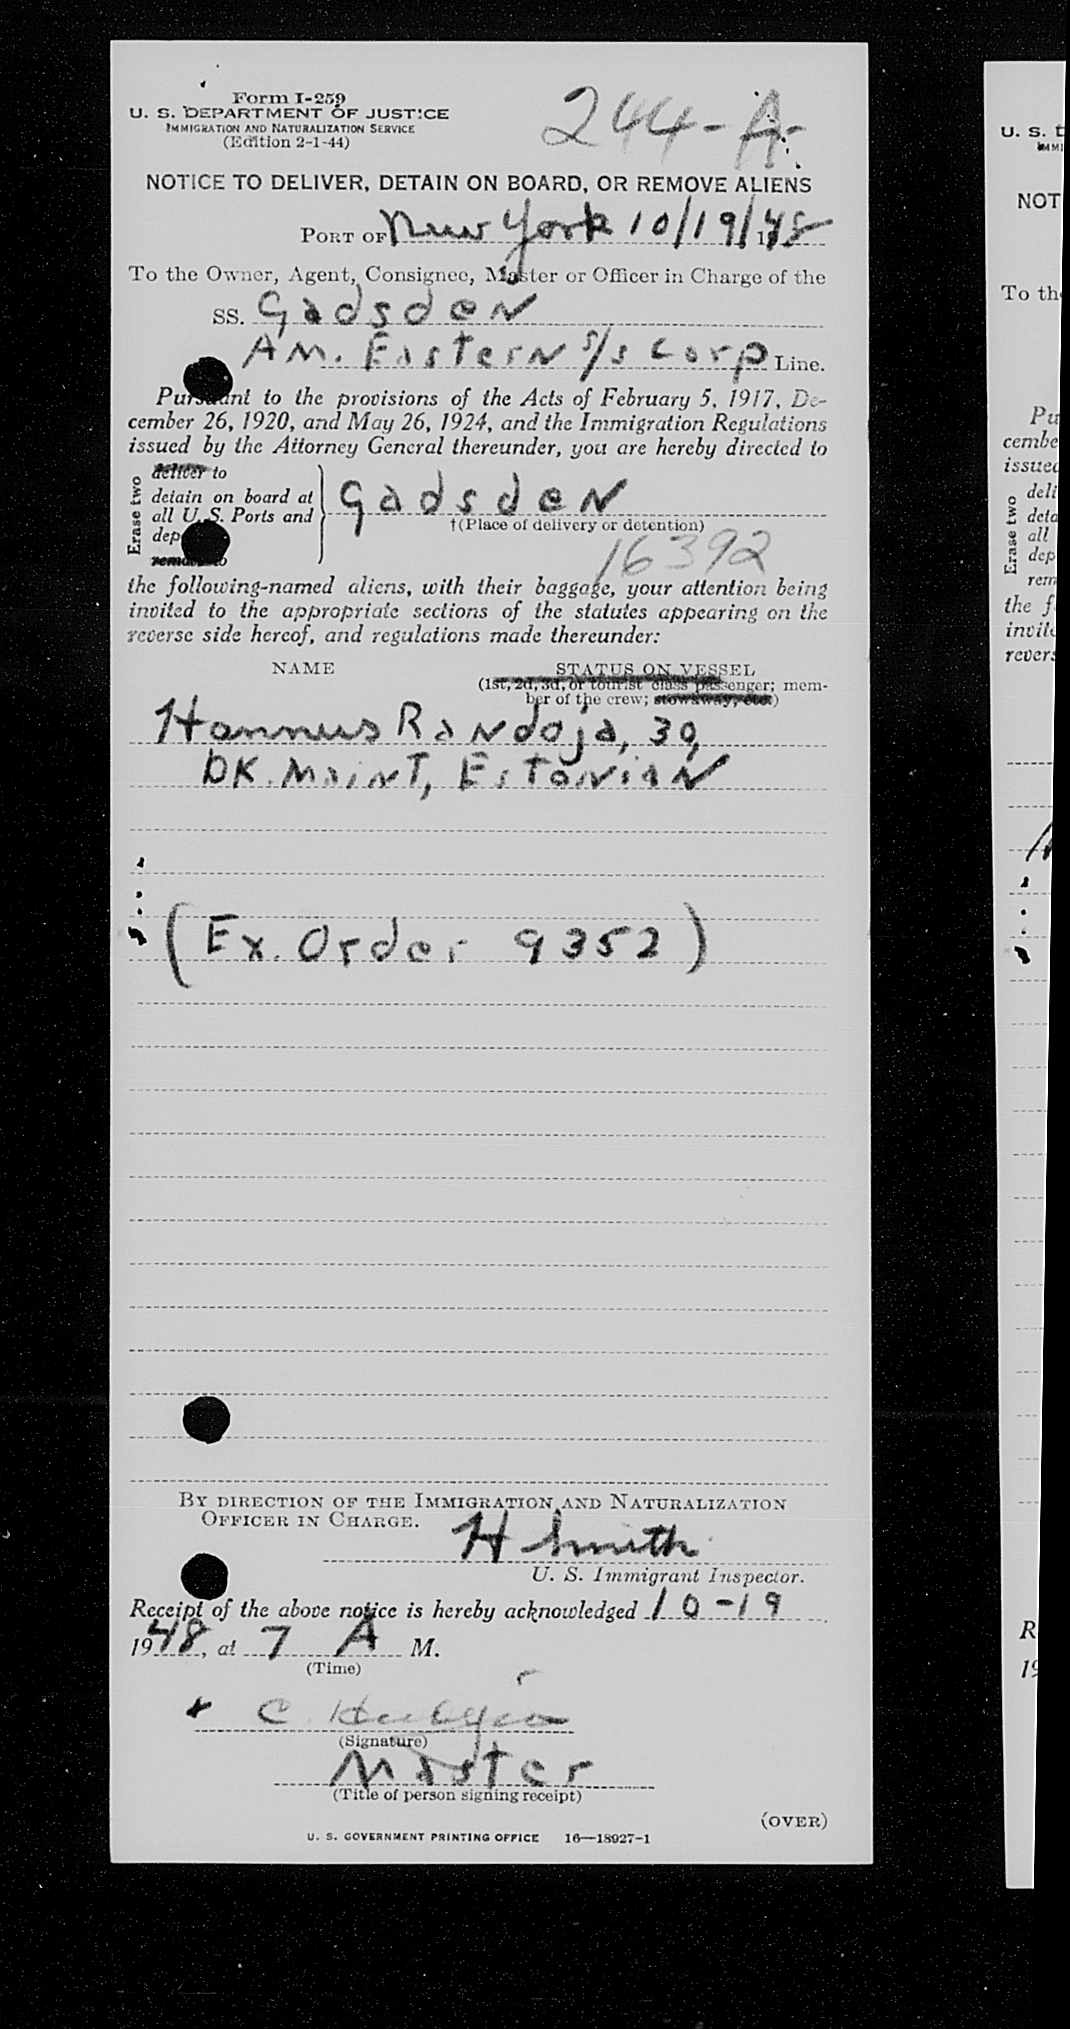 Form I-259
U. S. DEPARTMENT OF JUSTICE
IMMIGRATION AND NATURALIZATION SERVICE
(Edition 2-1-44)
244-A
NOTICE TO DELIVER, DETAIN ON BOARD, OR REMOVE ALIENS
PORT OF New York 10/19/48
To the Owner, Agent, Consignee, Master or Officer in Charge of the
SS. Gadsden
AM. Eastern S/S Corp Line.
Pursuant to the provisions of the Acts of February 5, 1917, De-
cember 26, 1920, and May 26, 1924, and the Immigration Regulations
issued by the Attorney General thereunder, you are hereby directed to
Erase two
deliver to
detain on board at
all U. S. Ports and
dep
remove to
Gadsden
†(Place of delivery or detention)
16392
the following-named aliens, with their baggage, your attention being
invited to the appropriate sections of the statutes appearing on the
reverse side hereof, and regulations made thereunder:
NAME
STATUS ON VESSEL
(1st, 2d, 3d, or tourist class passenger; mem-
ber of the crew; stowaway, etc.)
Hannus Randoja, 30,
DK. Maint, Estonian
(Ex. Order 9352)
BY DIRECTION OF THE IMMIGRATION AND NATURALIZATION
OFFICER IN CHARGE.
H Smith
U. S. Immigrant Inspector.
Receipt of the above notice is hereby acknowledged 10-19
1948, at 7 A M.
(Time)
C.
(Signature)
Master
(Title of person signing receipt)
(OVER)
U. S. GOVERNMENT PRINTING OFFICE 16—18927-1
U. S. D
IMMI
NOT
To th
Pu
cembe
issued
Erase two
deli
deta
all
dep
rem
the f
invite
revers
R
19